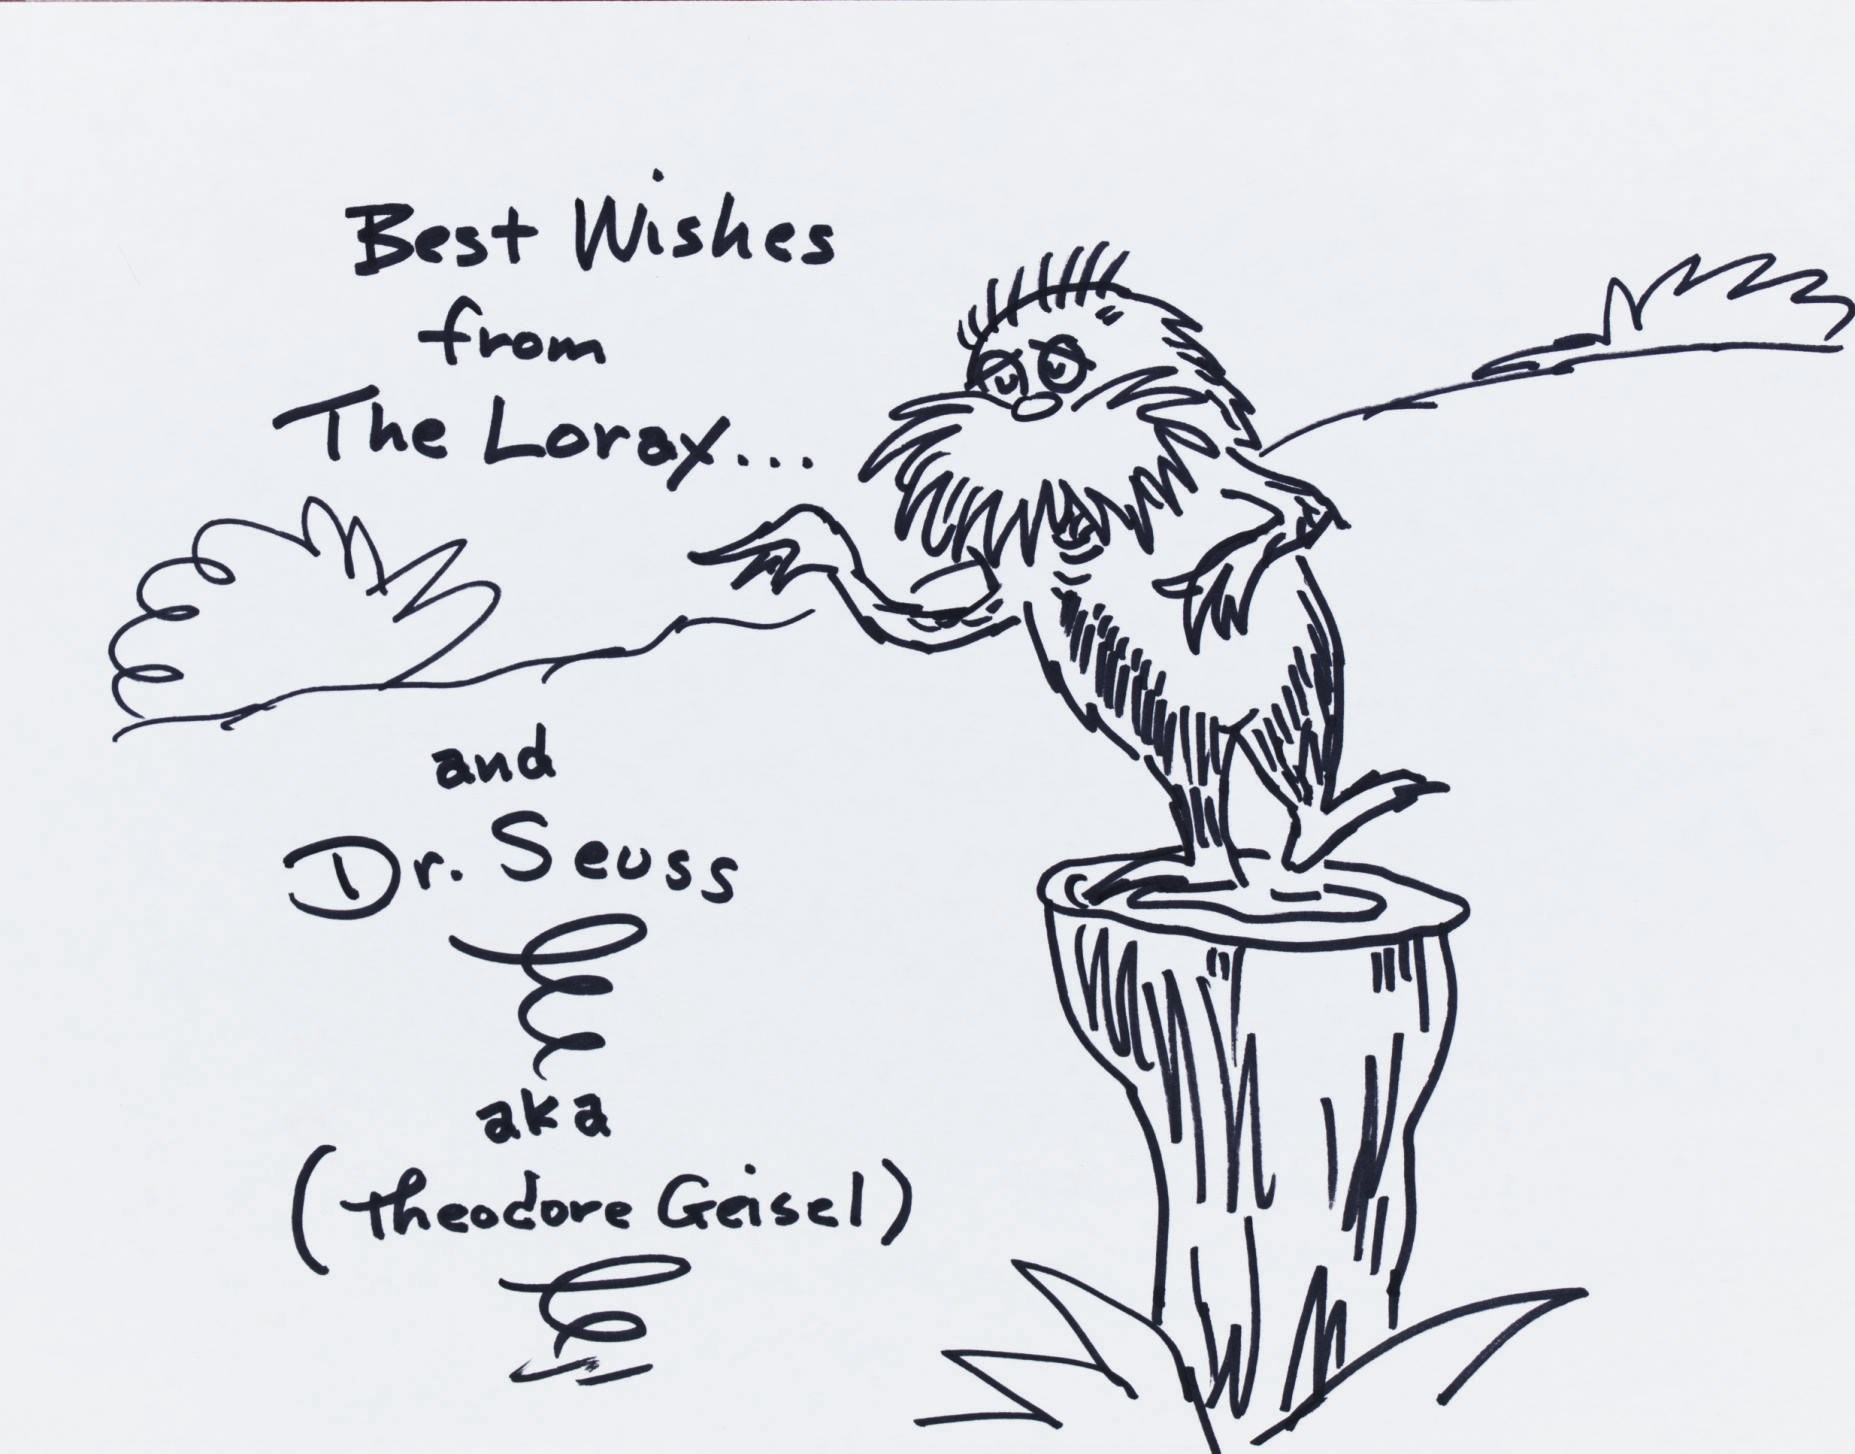 Best Wishes
from
The Lorax...
and
Dr. Seuss
aka
(Theodore Geisel)